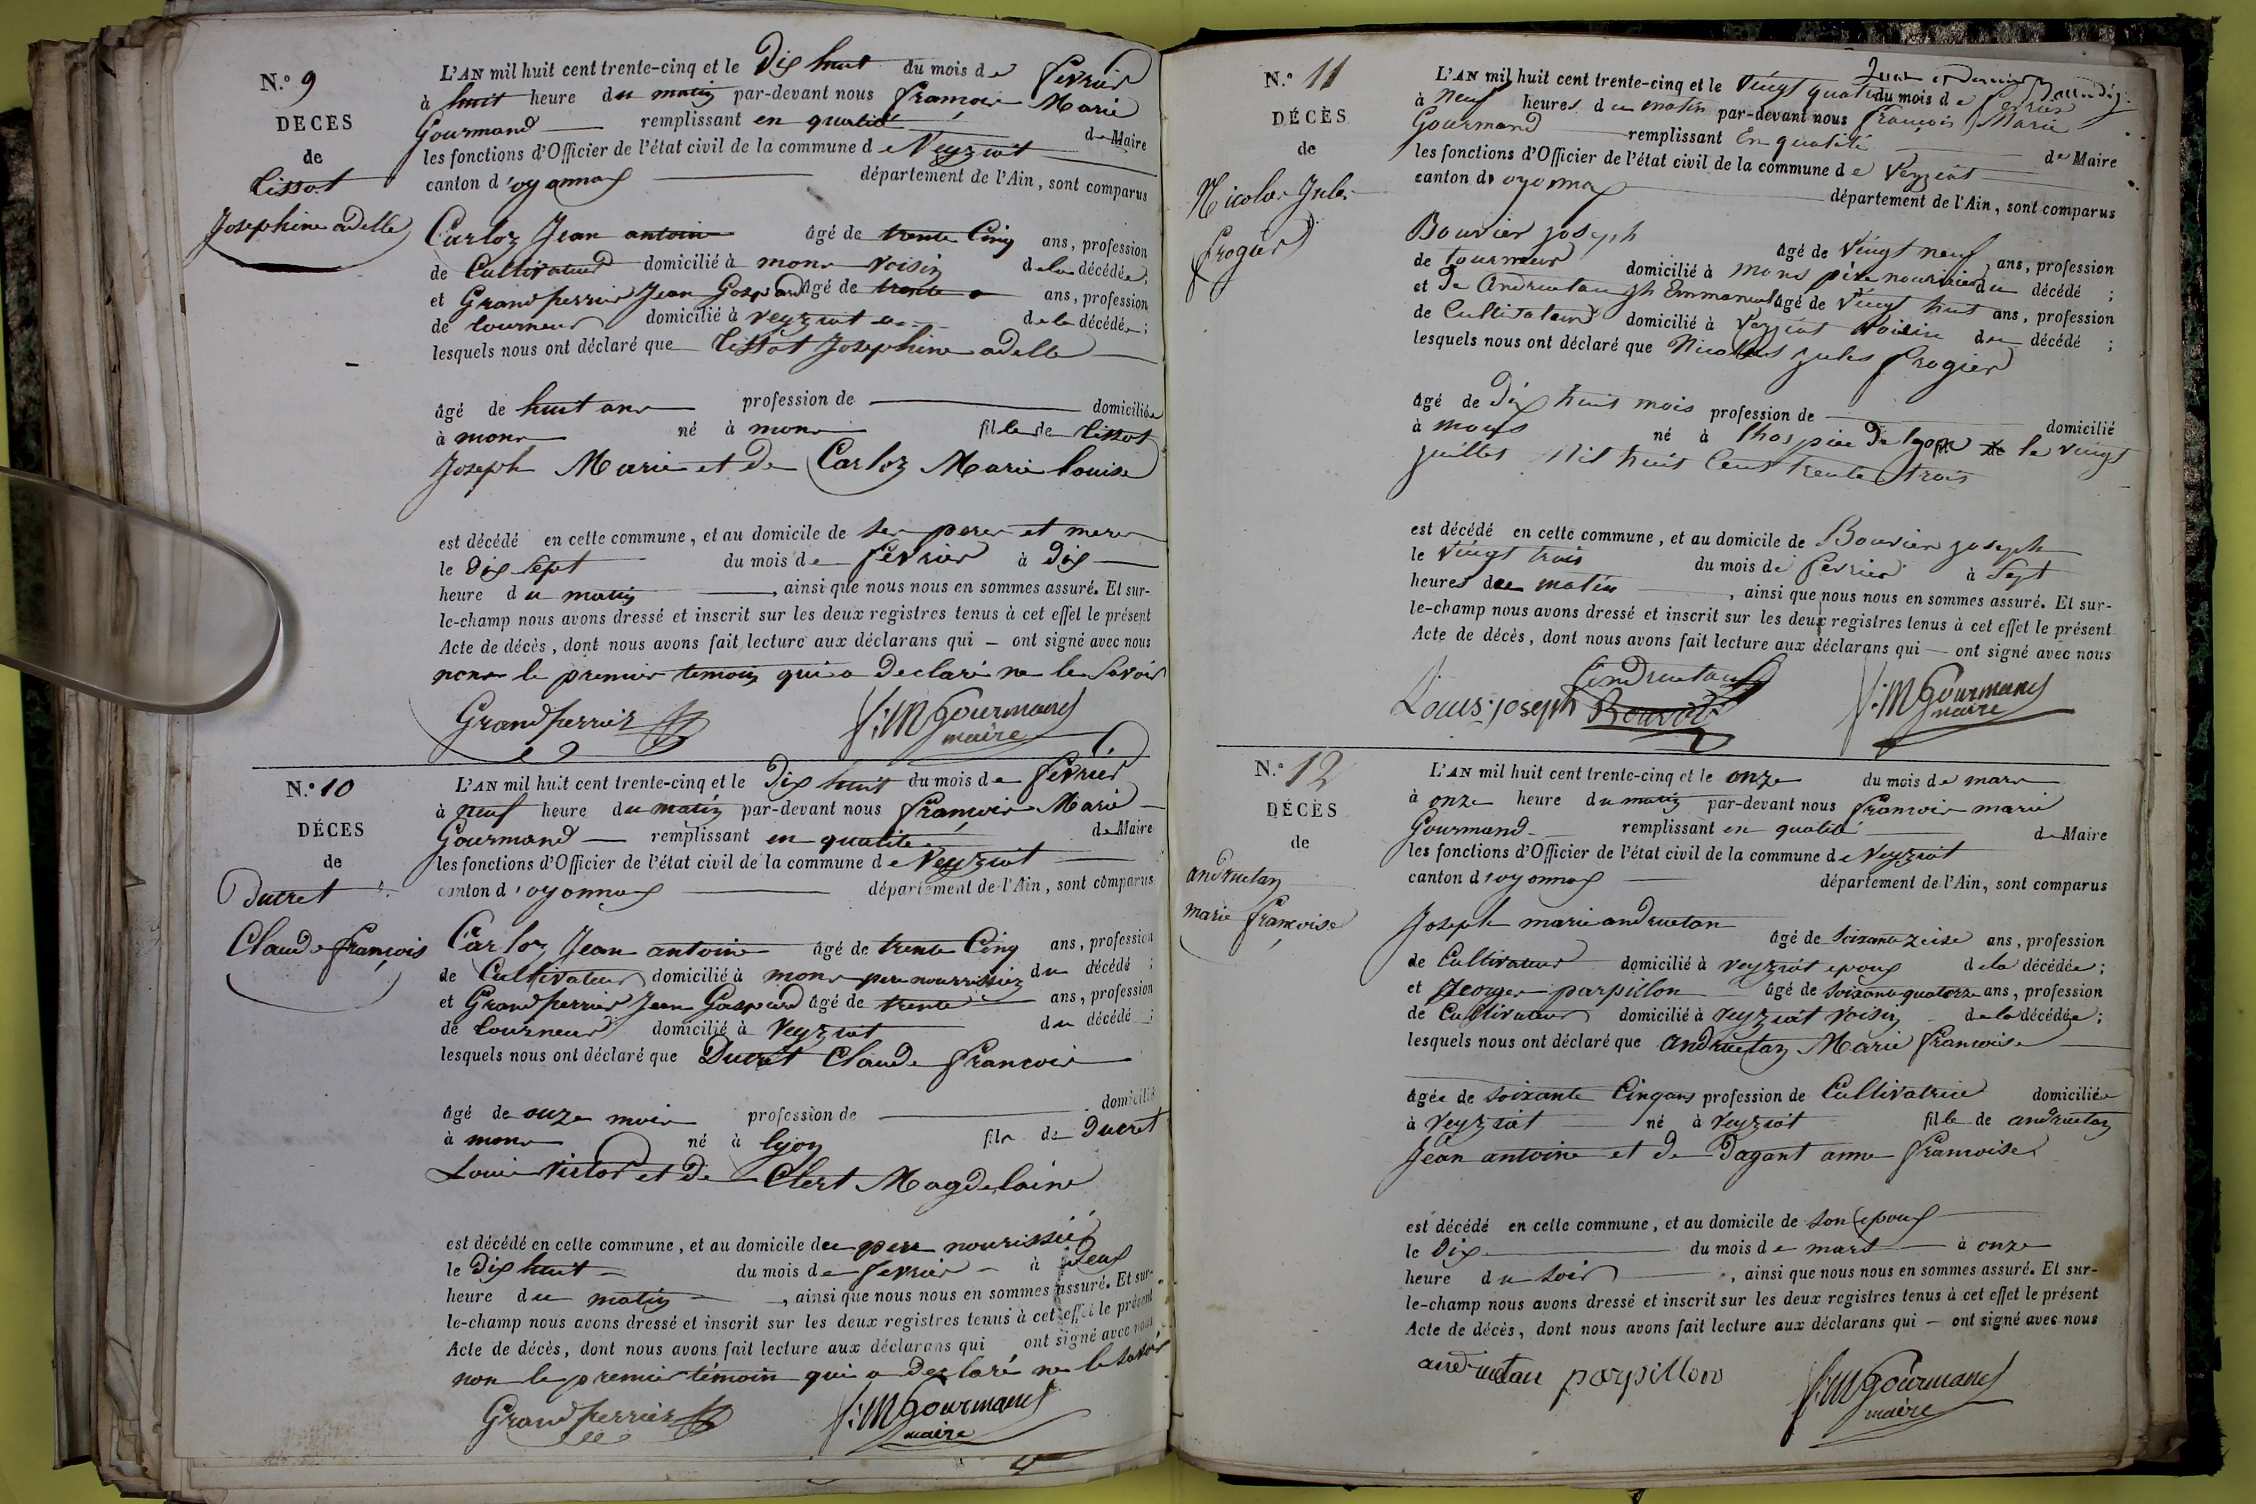 N.° 9
DÉCES
de
Tissot
Josephine adelle
L'AN mil huit cent trente-cinq et le Dix huit du mois de fevrier
à huit heure du matin par-devant nous francois Marie
Gourmand remplissant en qualité de Maire
les fonctions d'Officier de l'état civil de la commune de Veyziat
canton d'oyonnax département de l'Ain, sont comparus
Carloz Jean antoine âgé de trente Cinq ans, profession
de Cultivateur domicilié à mons voisin de la décédée;
et Grandperrier Jean Gaspard âgé de trente ans, profession
de tourneur domicilié à veyziat de la décédée;
lesquels nous ont déclaré que Tissot Josephine adelle
âgé de huit ans profession de domiciliée
à mons né à mons fille de Tissot
Joseph Marie et de Carloz Marie louise
est décédé en cette commune, et au domicile de ses peres et meres
le Dix Sept du mois de fevrier à Dix
heure du matin, ainsi que nous nous en sommes assuré. Et sur-
le-champ nous avons dressé et inscrit sur les deux registres tenus à cet effet le présent
Acte de décès, dont nous avons fait lecture aux déclarans qui – ont signé avec nous
non le premier temoin qui a Declaré ne le Savoir
Grandperrier f: M Gourmand
maire
N.° 10
DÉCES
de
Ducret
Claude françois
L'AN mil huit cent trente-cinq et le Dix huit du mois de fevrier
à neuf heure du matin par-devant nous françois Marie
Gourmand remplissant en qualite de Maire
les fonctions d'Officier de l'état civil de la commune de Veyziat
canton d'oyonnax département de l'Ain, sont comparus
Carloz Jean antoine âgé de trente Cinq ans, profession
de Cultivateur domicilié à mons pere nourrissier du décédé;
et Grandperrier Jean Gaspard âgé de trente ans, profession
de tourneur domicilié à Veyziat du décédé;
lesquels nous ont déclaré que Ducret Claude francois
âgé de onze mois profession de domicilié
à mons né à lyon fils de Ducret
Louis victor et de Clert Magdelaine
est décédé en cette commune, et au domicile du pere nourissié
le Dix huit du mois de fevrier à Deux
heure du matin, ainsi que nous nous en sommes assuré. Et sur-
le-champ nous avons dressé et inscrit sur les deux registres tenus à cet effet le présent
Acte de décès, dont nous avons fait lecture aux déclarans qui ont signé avec nous
non le premier témoin qui a declaré ne le Savoir
Grandperrier f: M Gourmand
maire
N.° 11
DÉCÈS
de
Nicolas Jules
Frogier
L'AN mil huit cent trente-cinq et le Vingt quatre du mois de fevrier
à neuf heures du matin par-devant nous François Marie
Gourmand remplissant En qualité de Maire
les fonctions d'Officier de l'état civil de la commune de Veyziat
canton d'oyonnax département de l'Ain, sont comparus
Bouvier joseph âgé de Vingt neuf ans, profession
de tourneur domicilié à mons père nouricier du décédé;
et De Andruetan jh Emmanuel âgé de Vingt huit ans, profession
de Cultivateur domicilié à Veyziat Voisin du décédé;
lesquels nous ont déclaré que Nicolas jules frogier
âgé de Dix huit mois profession de domicilié
à mons né à lhospice de lyon le vingt
juillet Mil huit Cent trente trois
est décédé en cette commune, et au domicile de Bouvier joseph
le Vingt trois du mois de fevrier à Sept
heures du matin, ainsi que nous nous en sommes assuré. Et sur-
le-champ nous avons dressé et inscrit sur les deux registres tenus à cet effet le présent
Acte de décès, dont nous avons fait lecture aux déclarans qui – ont signé avec nous
andruetan
Louis joseph f: M Gourmand
maire
N.° 12
DÉCÈS
de
andruetan
marie françoise
L'AN mil huit cent trente-cinq et le onze du mois de mars
à onze heure du matin par-devant nous francois marie
Gourmand remplissant en qualité de Maire
les fonctions d'Officier de l'état civil de la commune de Veyziat
canton d'oyonnax département de l'Ain, sont comparus
Joseph marie andruetan âgé de soixante zeise ans, profession
de Cultivateur domicilié à veyziat epoux de la décédée;
et George parpillon âgé de soixante quatorze ans, profession
de Cultivateur domicilié à veyziat voisin de la décédée;
lesquels nous ont déclaré que andruetan Marie francoise
âgée de soixante Cinq ans profession de Cultivatrice domiciliée
à Veyziat né à Veyziat fille de andruetan
Jean antoine et de Dagant anne francoise
est décédé en cette commune, et au domicile de son epoux
le Dix du mois de mars à onze
heure du soir, ainsi que nous nous en sommes assuré. Et sur-
le-champ nous avons dressé et inscrit sur les deux registres tenus à cet effet le présent
Acte de décès, dont nous avons fait lecture aux déclarans qui – ont signé avec nous
andruetan parpillon f: M Gourmand
maire